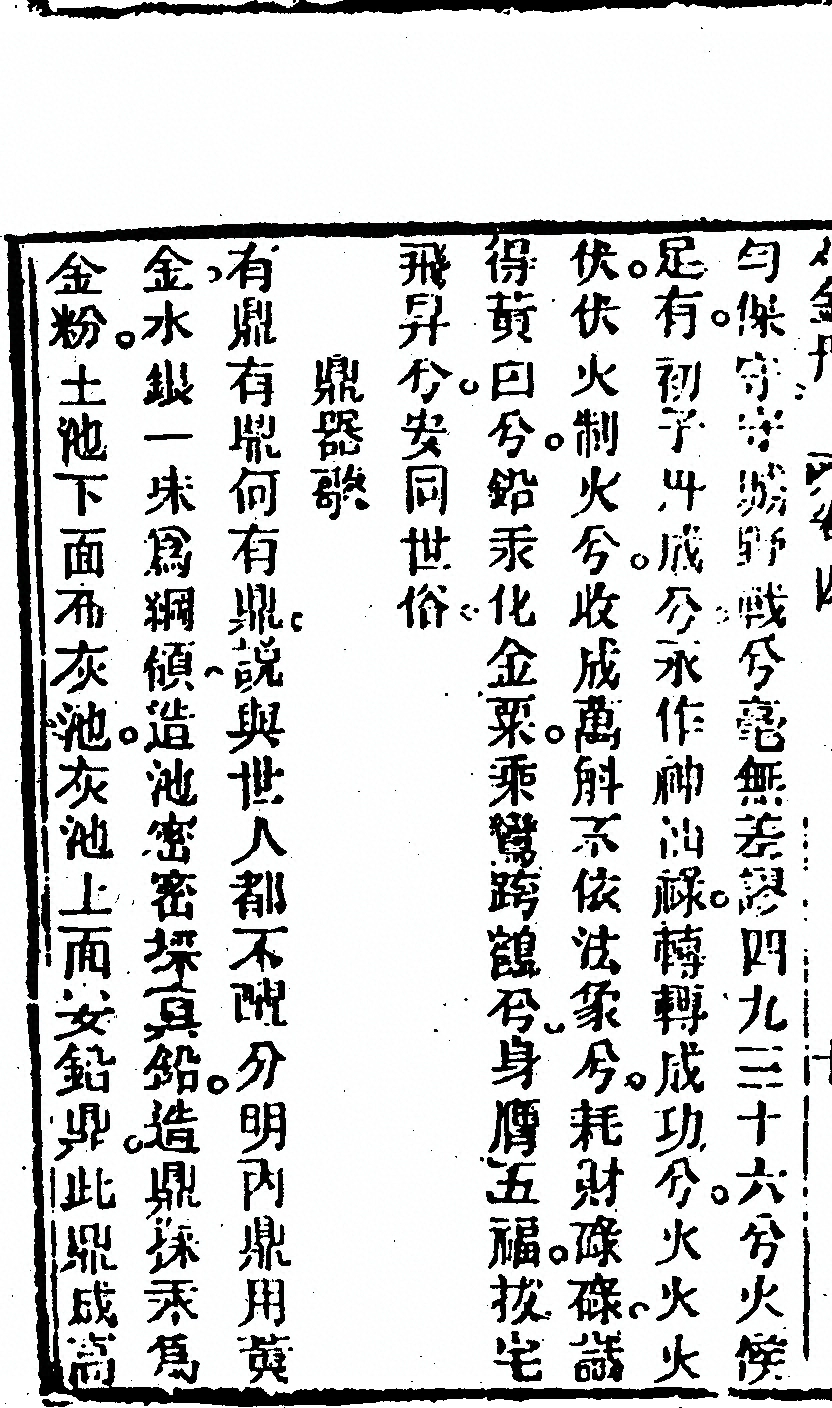 金丹 卷四 十
勻保守守城野戰兮毫無差謬四九三十六兮火候
足有初子升成兮永作神仙祿轉轉成功兮火火火
伏伏火制火兮收成萬斛不依法象兮耗財碌碌識
得黃曰兮鉛汞化金粟乘鸞跨鶴兮身膺五福拔宅
飛昇兮安同世俗
鼎器歌
有鼎有鼎何有鼎說與世人都不醒分明內鼎用黃
金水銀一味為綱傾造池密密採真鉛造鼎採汞為
金粉土池下面布灰池灰池上面安鉛鼎此鼎成高